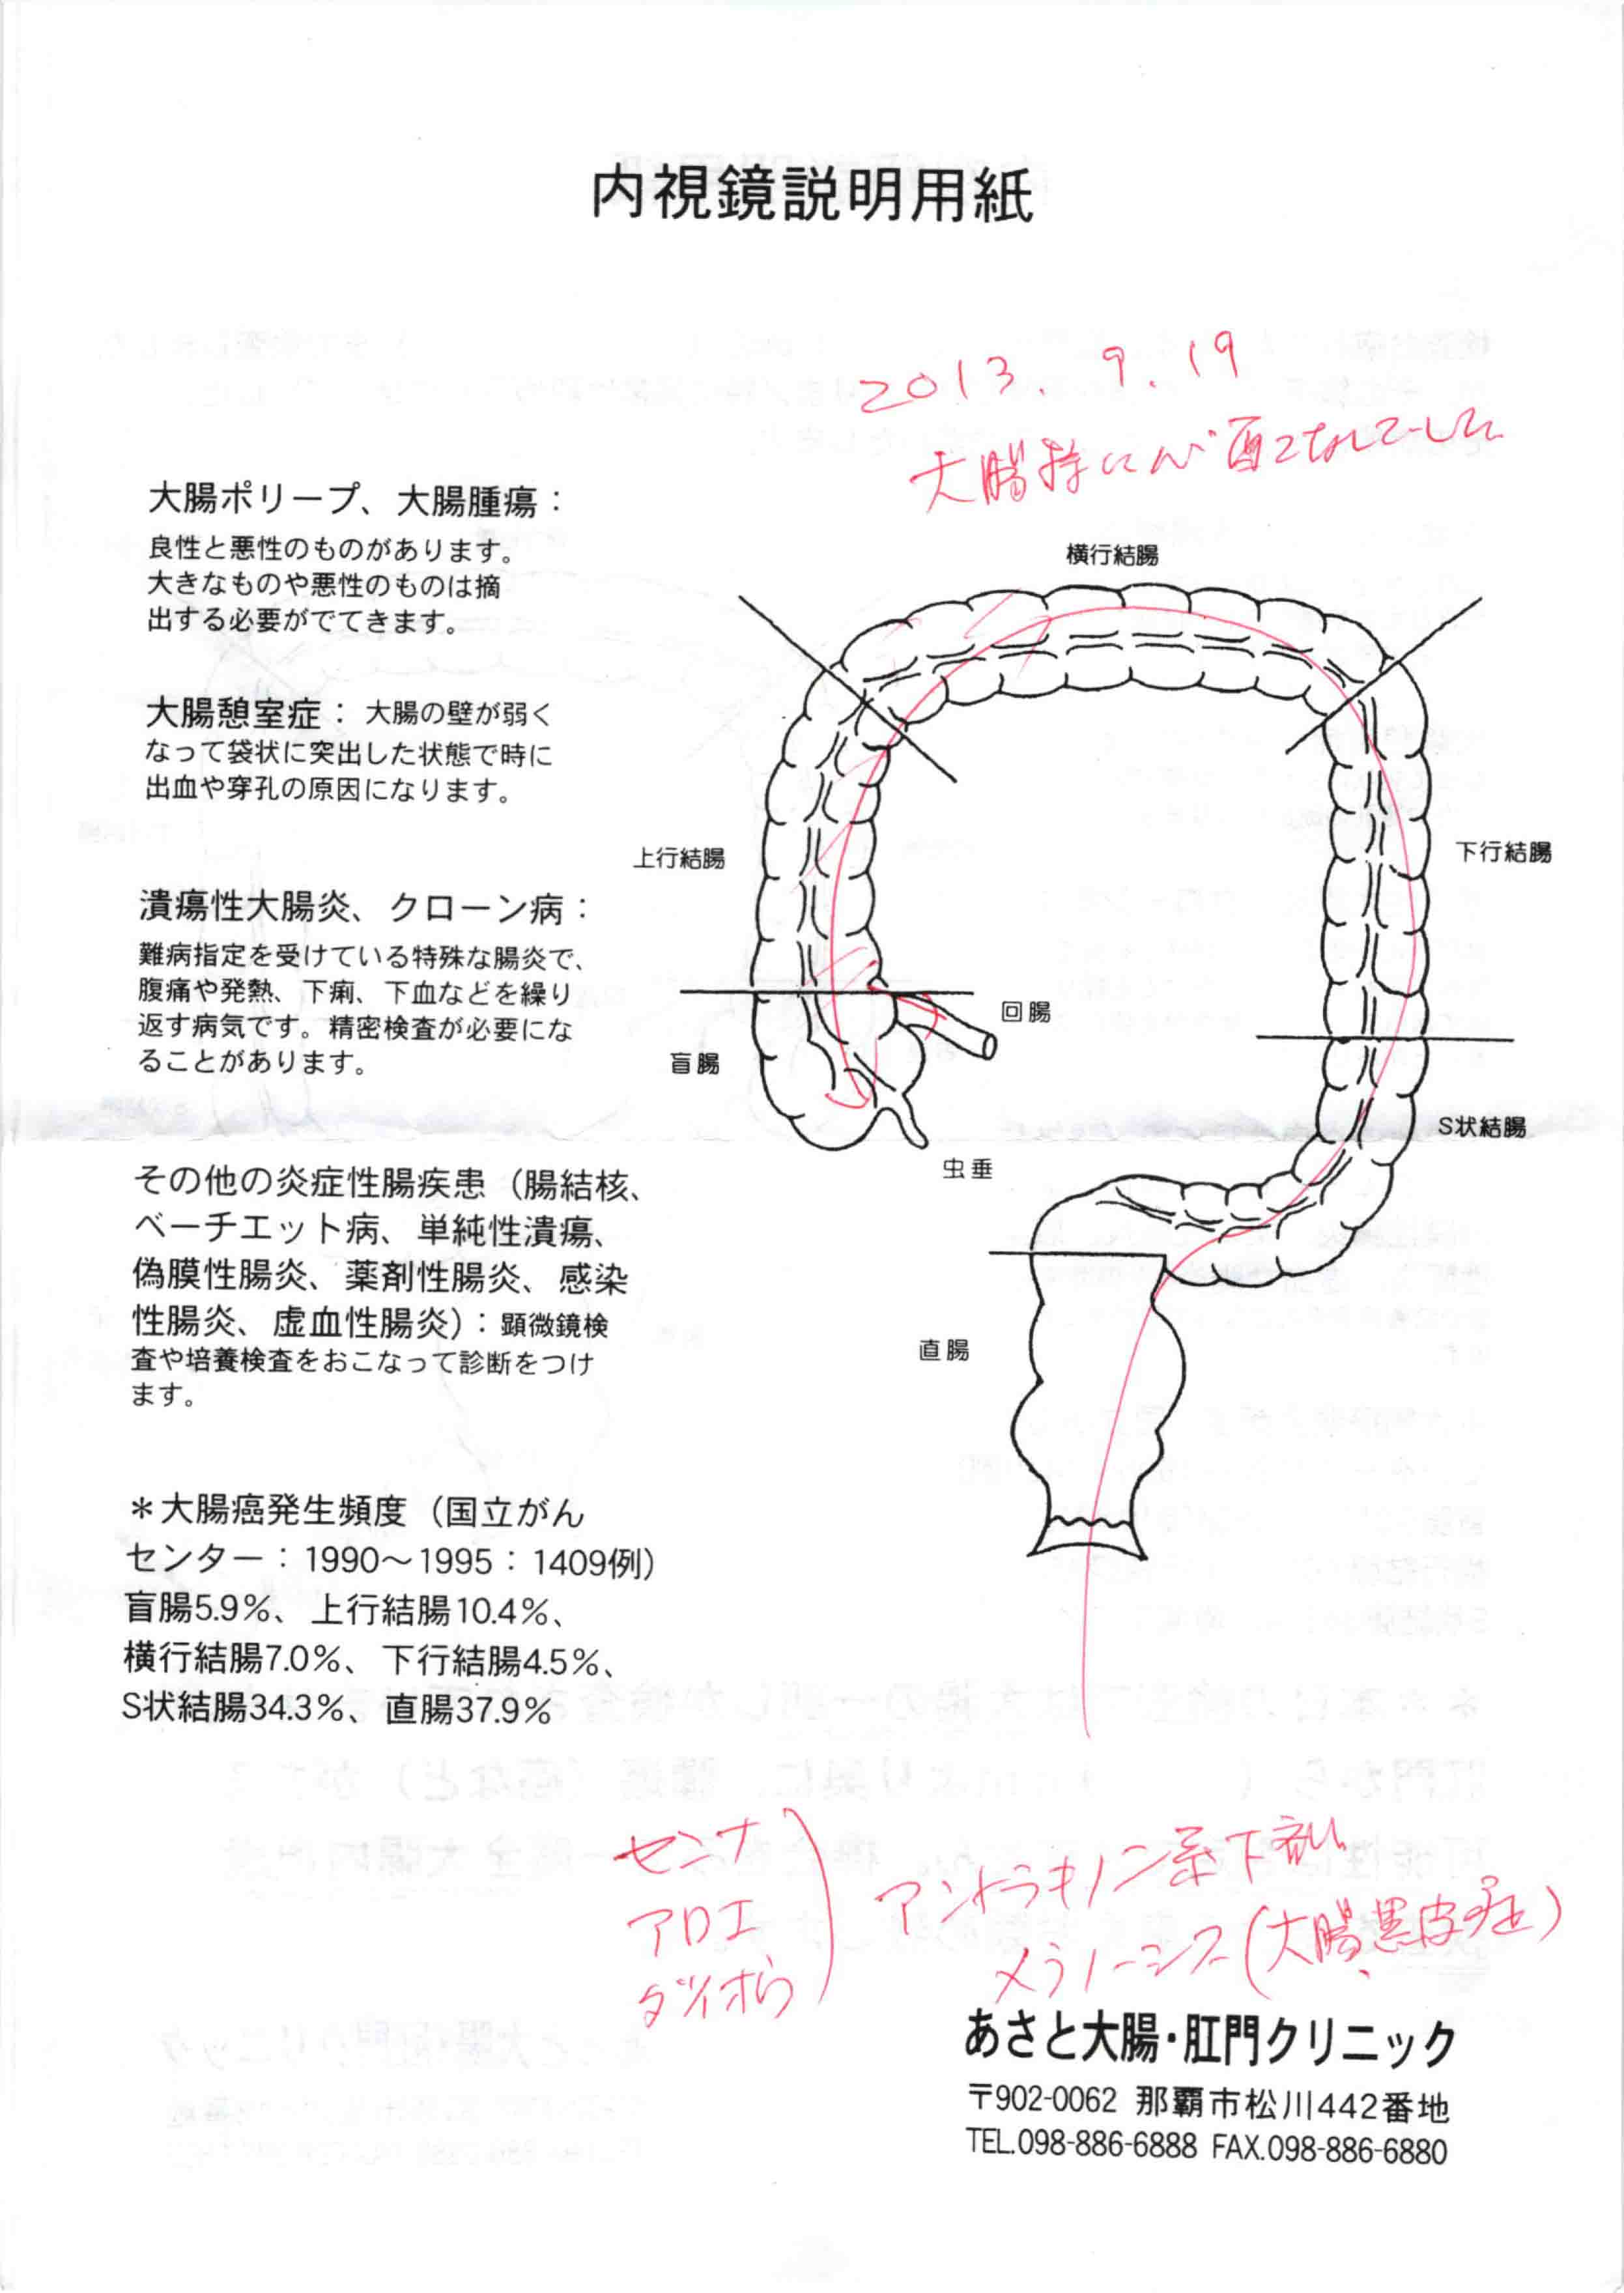 内視鏡説明用紙
2013. 9. 19
大腸特に心配なしでした
大腸ポリープ、大腸腫瘍：
良性と悪性のものがあります。
大きなものや悪性のものは摘
出する必要がでてきます。
大腸憩室症：大腸の壁が弱く
なって袋状に突出した状態で時に
出血や穿孔の原因になります。
潰瘍性大腸炎、クローン病：
難病指定を受けている特殊な腸炎で、
腹痛や発熱、下痢、下血などを繰り
返す病気です。精密検査が必要にな
ることがあります。
その他の炎症性腸疾患（腸結核、
ベーチエット病、単純性潰瘍、
偽膜性腸炎、薬剤性腸炎、感染
性腸炎、虚血性腸炎）：顕微鏡検
査や培養検査をおこなって診断をつけ
ます。
＊大腸癌発生頻度（国立がん
センター：1990～1995：1409例）
盲腸5.9％、上行結腸10.4％、
横行結腸7.0％、下行結腸4.5％、
S状結腸34.3％、直腸37.9％
横行結腸
上行結腸
下行結腸
回腸
盲腸
S状結腸
虫垂
直腸
センナ
アロエ
ダイオウ
アントラキノン系下剤
メラノーシス（大腸黒皮症）
あさと大腸・肛門クリニック
〒902-0062 那覇市松川442番地
TEL.098-886-6888 FAX.098-886-6880